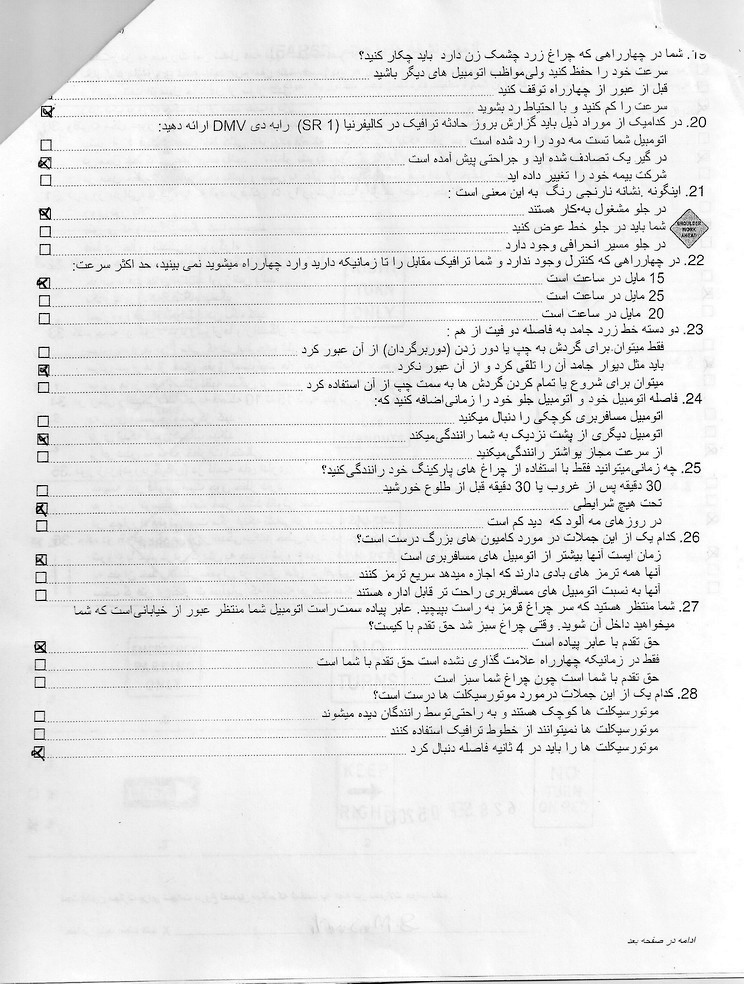 19. شما در چهارراهی که چراغ زرد چشمک زن دارد باید چکار کنید؟
سرعت خود را حفظ کنید ولی مواظب اتومبیل های دیگر باشید
قبل از عبور از چهارراه توقف کنید
سرعت را کم کنید و با احتیاط رد بشوید
20. در کدامیک از موراد ذیل باید گزارش بروز حادثه ترافیک در کالیفرنیا (SR 1) رابه دی DMV ارائه دهید:
اتومبیل شما تست مه دود را رد شده است
در گیر یک تصادف شده اید و جراحتی پیش آمده است
شرکت بیمه خود را تغییر داده اید
21. اینگونه نشانه نارنجی رنگ به این معنی است :
در جلو مشغول به کار هستند
SHOULDER
WORK
AHEAD
شما باید در جلو خط عوض کنید
در جلو مسیر انحرافی وجود دارد
22. در چهارراهی که کنترل وجود ندارد و شما ترافیک مقابل را تا زمانیکه دارید وارد چهارراه میشوید نمی بینید، حد اکثر سرعت:
15 مایل در ساعت است
25 مایل در ساعت است
20 مایل در ساعت است
23. دو دسته خط زرد جامد به فاصله دو فیت از هم :
فقط میتوان برای گردش به چپ یا دور زدن (دوربرگردان) از آن عبور کرد
باید مثل دیوار جامد آن را تلقی کرد و از آن عبور نکرد
میتوان برای شروع یا تمام کردن گردش ها به سمت چپ از آن استفاده کرد
24. فاصله اتومبیل خود و اتومبیل جلو خود را زمانی اضافه کنید که:
اتومبیل مسافربری کوچکی را دنبال میکنید
اتومبیل دیگری از پشت نزدیک به شما رانندگی میکند
از سرعت مجاز یواشتر رانندگی میکنید
25. چه زمانی میتوانید فقط با استفاده از چراغ های پارکینگ خود رانندگی کنید؟
30 دقیقه پس از غروب یا 30 دقیقه قبل از طلوع خورشید
تحت هیچ شرایطی
در روزهای مه آلود که دید کم است
26. کدام یک از این جملات در مورد کامیون های بزرگ درست است؟
زمان ایست آنها بیشتر از اتومبیل های مسافربری است
آنها همه ترمز های بادی دارند که اجازه میدهد سریع ترمز کنند
آنها به نسبت اتومبیل های مسافربری راحت تر قابل اداره هستند
27. شما منتظر هستید که سر چراغ قرمز به راست بپیچید. عابر پیاده سمت راست اتومبیل شما منتظر عبور از خیابانی است که شما
میخواهید داخل آن شوید. وقتی چراغ سبز شد حق تقدم با کیست؟
حق تقدم با عابر پیاده است
فقط در زمانیکه چهارراه علامت گذاری نشده است حق تقدم با شما است
حق تقدم با شما است چون چراغ شما سبز است
28. کدام یک از این جملات درمورد موتورسیکلت ها درست است؟
موتورسیکلت ها کوچک هستند و به راحتی توسط رانندگان دیده میشوند
موتورسیکلت ها نمیتوانند از خطوط ترافیک استفاده کنند
موتورسیکلت ها را باید در 4 ثانیه فاصله دنبال کرد
ادامه در صفحه بعد